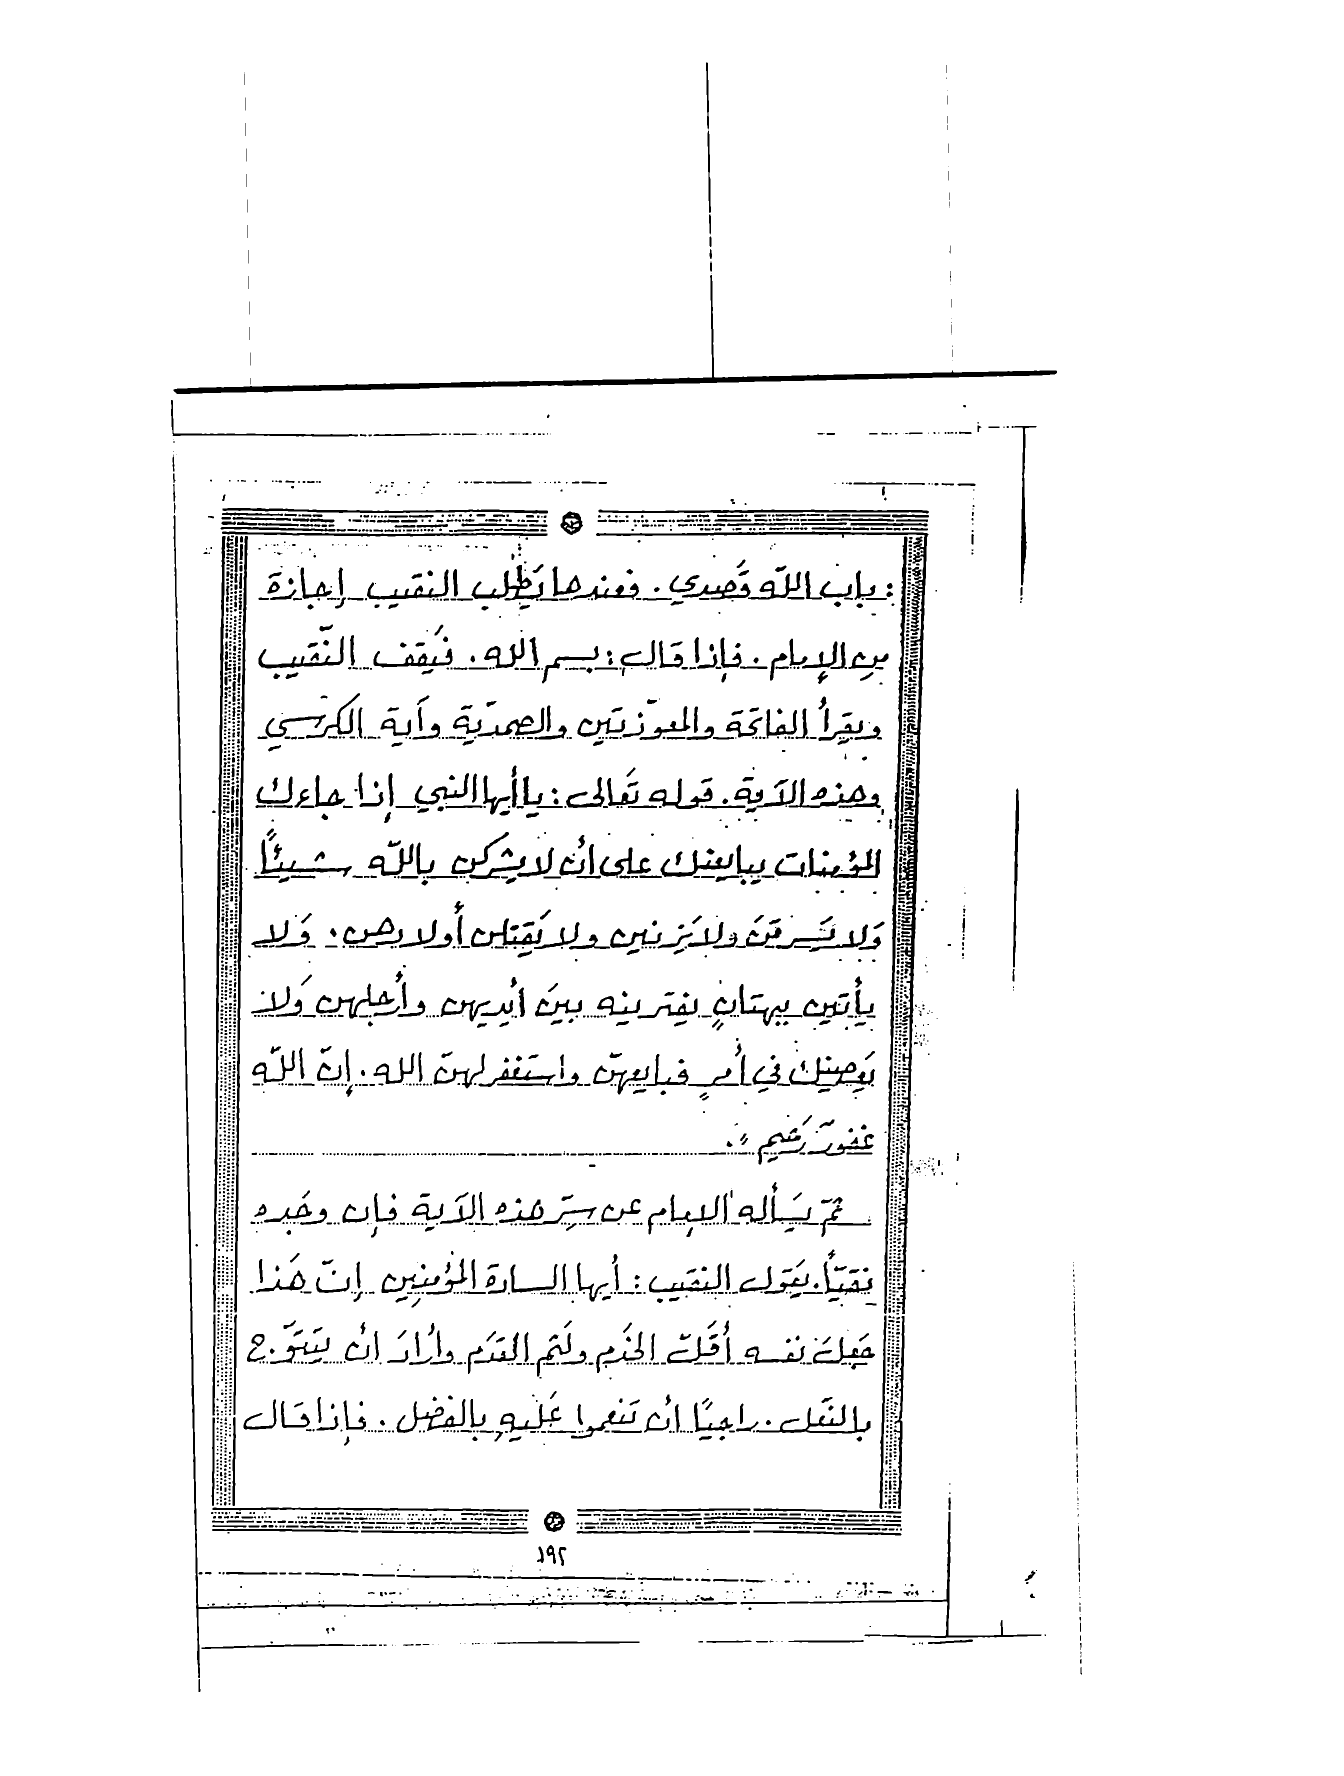 : باب اللّه قَصدي. فعندها يَطلب النقيب إجازة
من الإمام. فإذا قال: بسم الله. فيَقف النّقيب
ويقرأ الفاتحة والمعوّذتين والصمديّة وآية الكرسي
وهذه الآية. قوله تَعالى: يا أيها النبي إذا جاءك
المؤمنات يبايعنك على أن لا يشركن باللّه شيئاً
وَلا يَسرقنَ ولا يَزنين ولا يَقتلن أولادهن. وَلا
يأتين ببهتانٍ يفترينه بينَ أيديهن وأرجلهن وَلا
يَعصينك في أمرٍ فبايعهنّ واستغفر لهنّ الله. إنّ اللّه
غفورٌ رَحيم".
ثمّ يَسأله الإمام عن سِرّ هذه الآية فإن وجَده
نقيّاً. يَقول النقيب: أيها السادة المؤمنِين إنّ هَذا
جَعلَ نفسه أقَلّ الخدَم ولَثم القدَم وأرادَ أن يَتتَوّج
بالنَعل. راجيًا أن تَنعموا عَليهِ بالفضل. فإذا قال
١٩٢